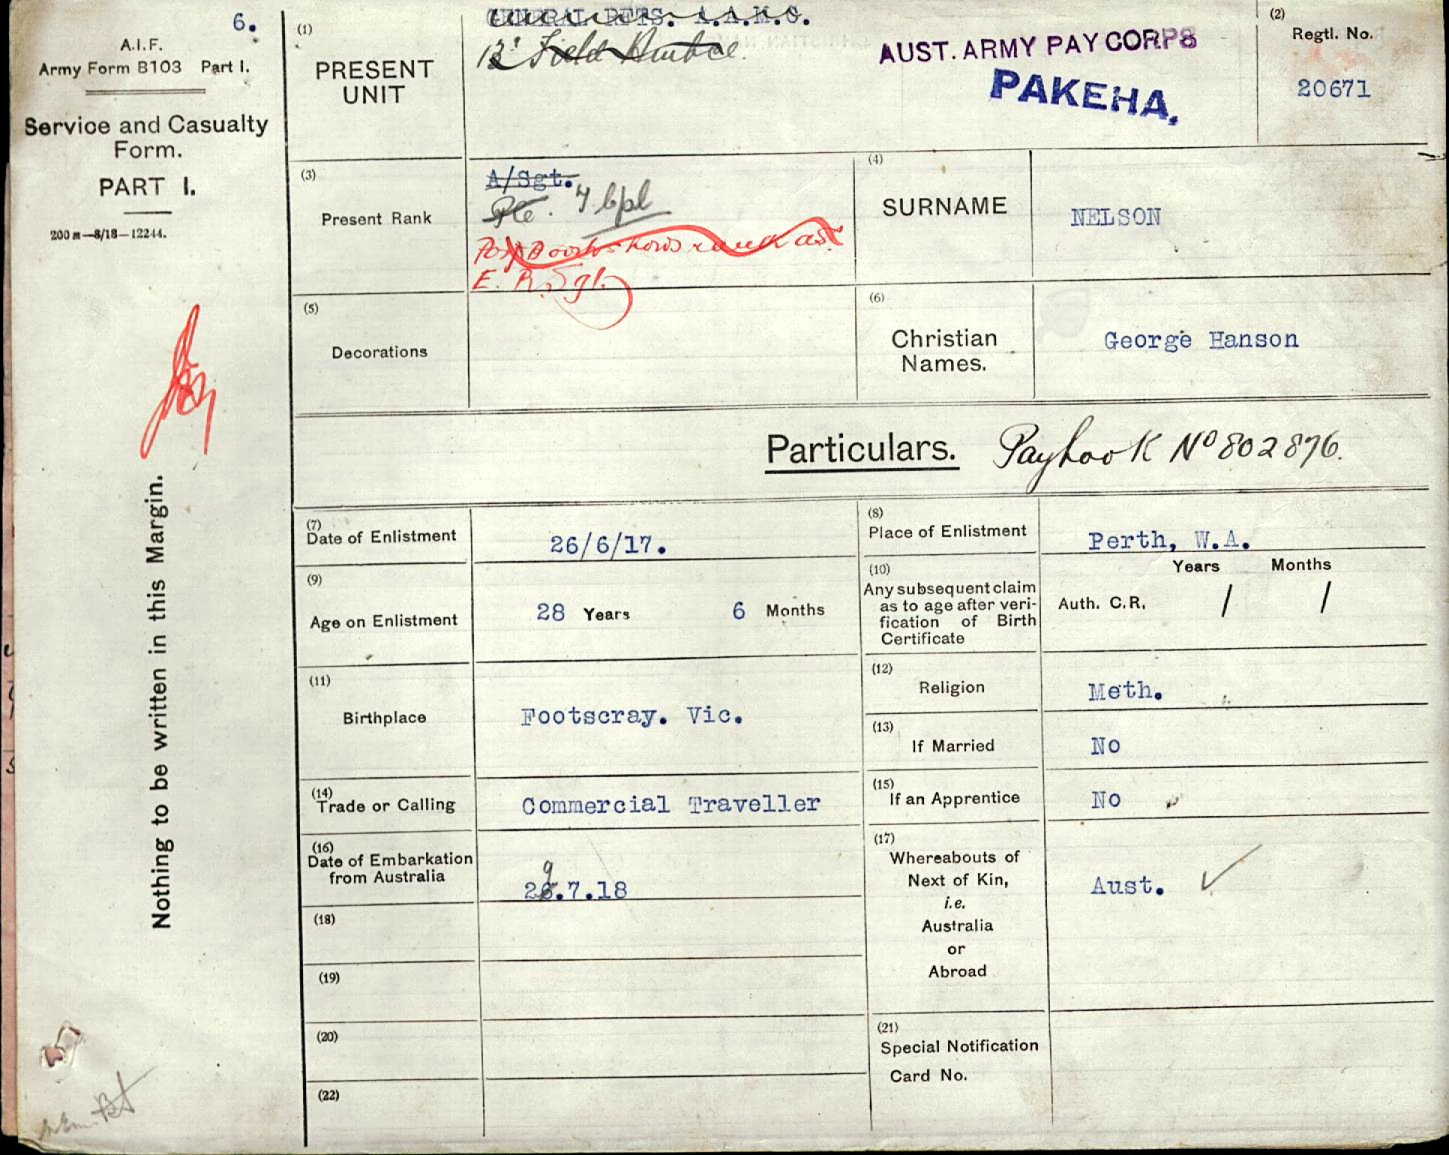 6.
A.I.F.
Army Form B103 Part I.
Service and Casualty
Form.
PART I.
200 m—8/18—12244.
Nothing to be written in this Margin.
(1)
PRESENT
UNIT
GENERAL RFTS. A.A.M.C.
13' Field Ambce.
AUST. ARMY PAY CORPS
PAKEHA.
(2)
Regtl. No.
20671
(3)
Present Rank
A/Sgt.
Pte.
E. R. Sgt.
(4)
SURNAME
NELSON
(5)
Decorations
(6)
Christian
Names.
George Hanson
Particulars. Paybook No 802876.
(7)
Date of Enlistment
26/6/17.
(8)
Place of Enlistment
Perth, W.A.
(9)
Age on Enlistment
28 Years 6 Months
(10)
Any subsequent claim
as to age after veri-
fication of Birth
Certificate
Years Months
Auth. C.R. / /
(11)
Birthplace
Footscray. Vic.
(12)
Religion
Meth.
(13)
If Married
No
(14)
Trade or Calling
Commercial Traveller
(15)
If an Apprentice
No
(16)
Date of Embarkation
from Australia
29.7.18
(17)
Whereabouts of
Next of Kin,
i.e.
Australia
or
Abroad
Aust.
(18)
(19)
(20)
(21)
Special Notification
Card No.
(22)